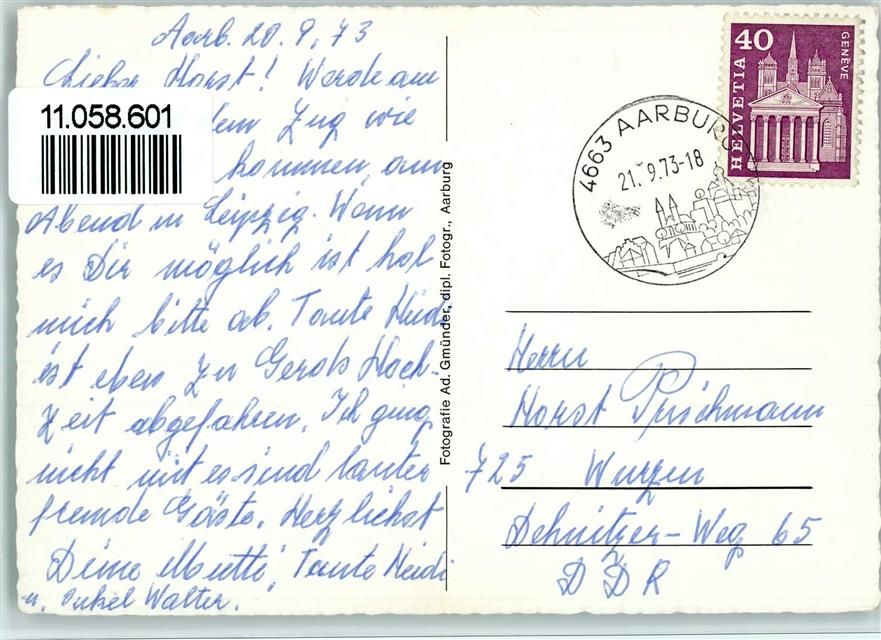 Aarb. 20.9.73
Lieber Horst! Werde am
dem Zug wie
kommen, am
Abend in Leipzig. Wenn
es Dir möglich ist hol
mich bitte ab. Tante Heidi
ist eben zu Gerols Hoch-
zeit abgefahren. Ich ging
nicht mit es sind lauter
fremde Gäste. Herzlichst
Deine Mutti, Tante Heidi
u. Onkel Walter.
11.058.601
Fotografie Ad. Gmünder, dipl. Fotogr., Aarburg
4663 AARBURG
21.9.73-18
40
HELVETIA
GENÈVE
Herrn
Horst Prischmann
725 Wurzen
Dehnitzer-Weg 65
DDR